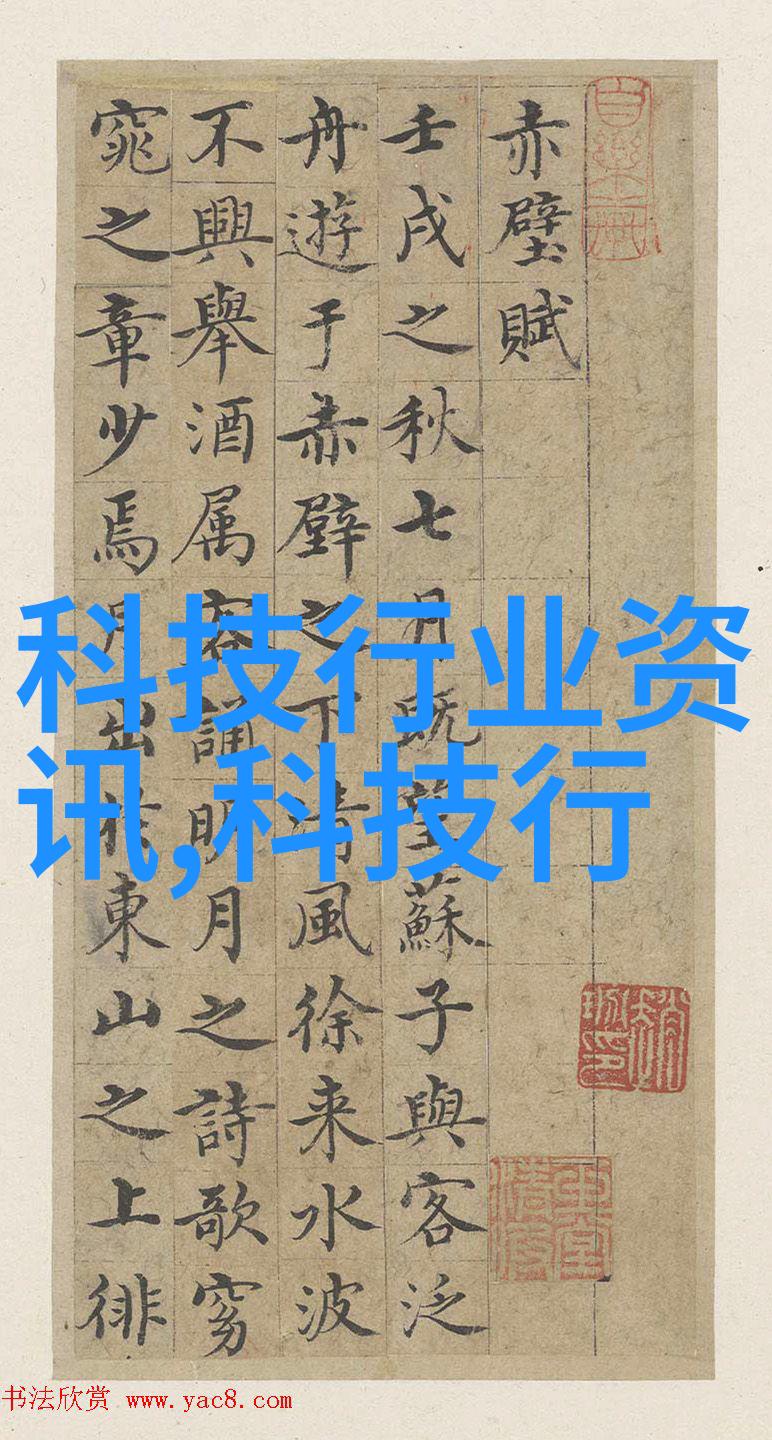 赤壁賦
壬戌之秋七月既望蘇子與客泛
舟遊于赤壁之下清風徐来水波
不興舉酒属客誦明月之詩歌窈
窕之章少焉月出於東山之上徘
科技行业资
讯,科技行
书法欣赏 www.yac8.com